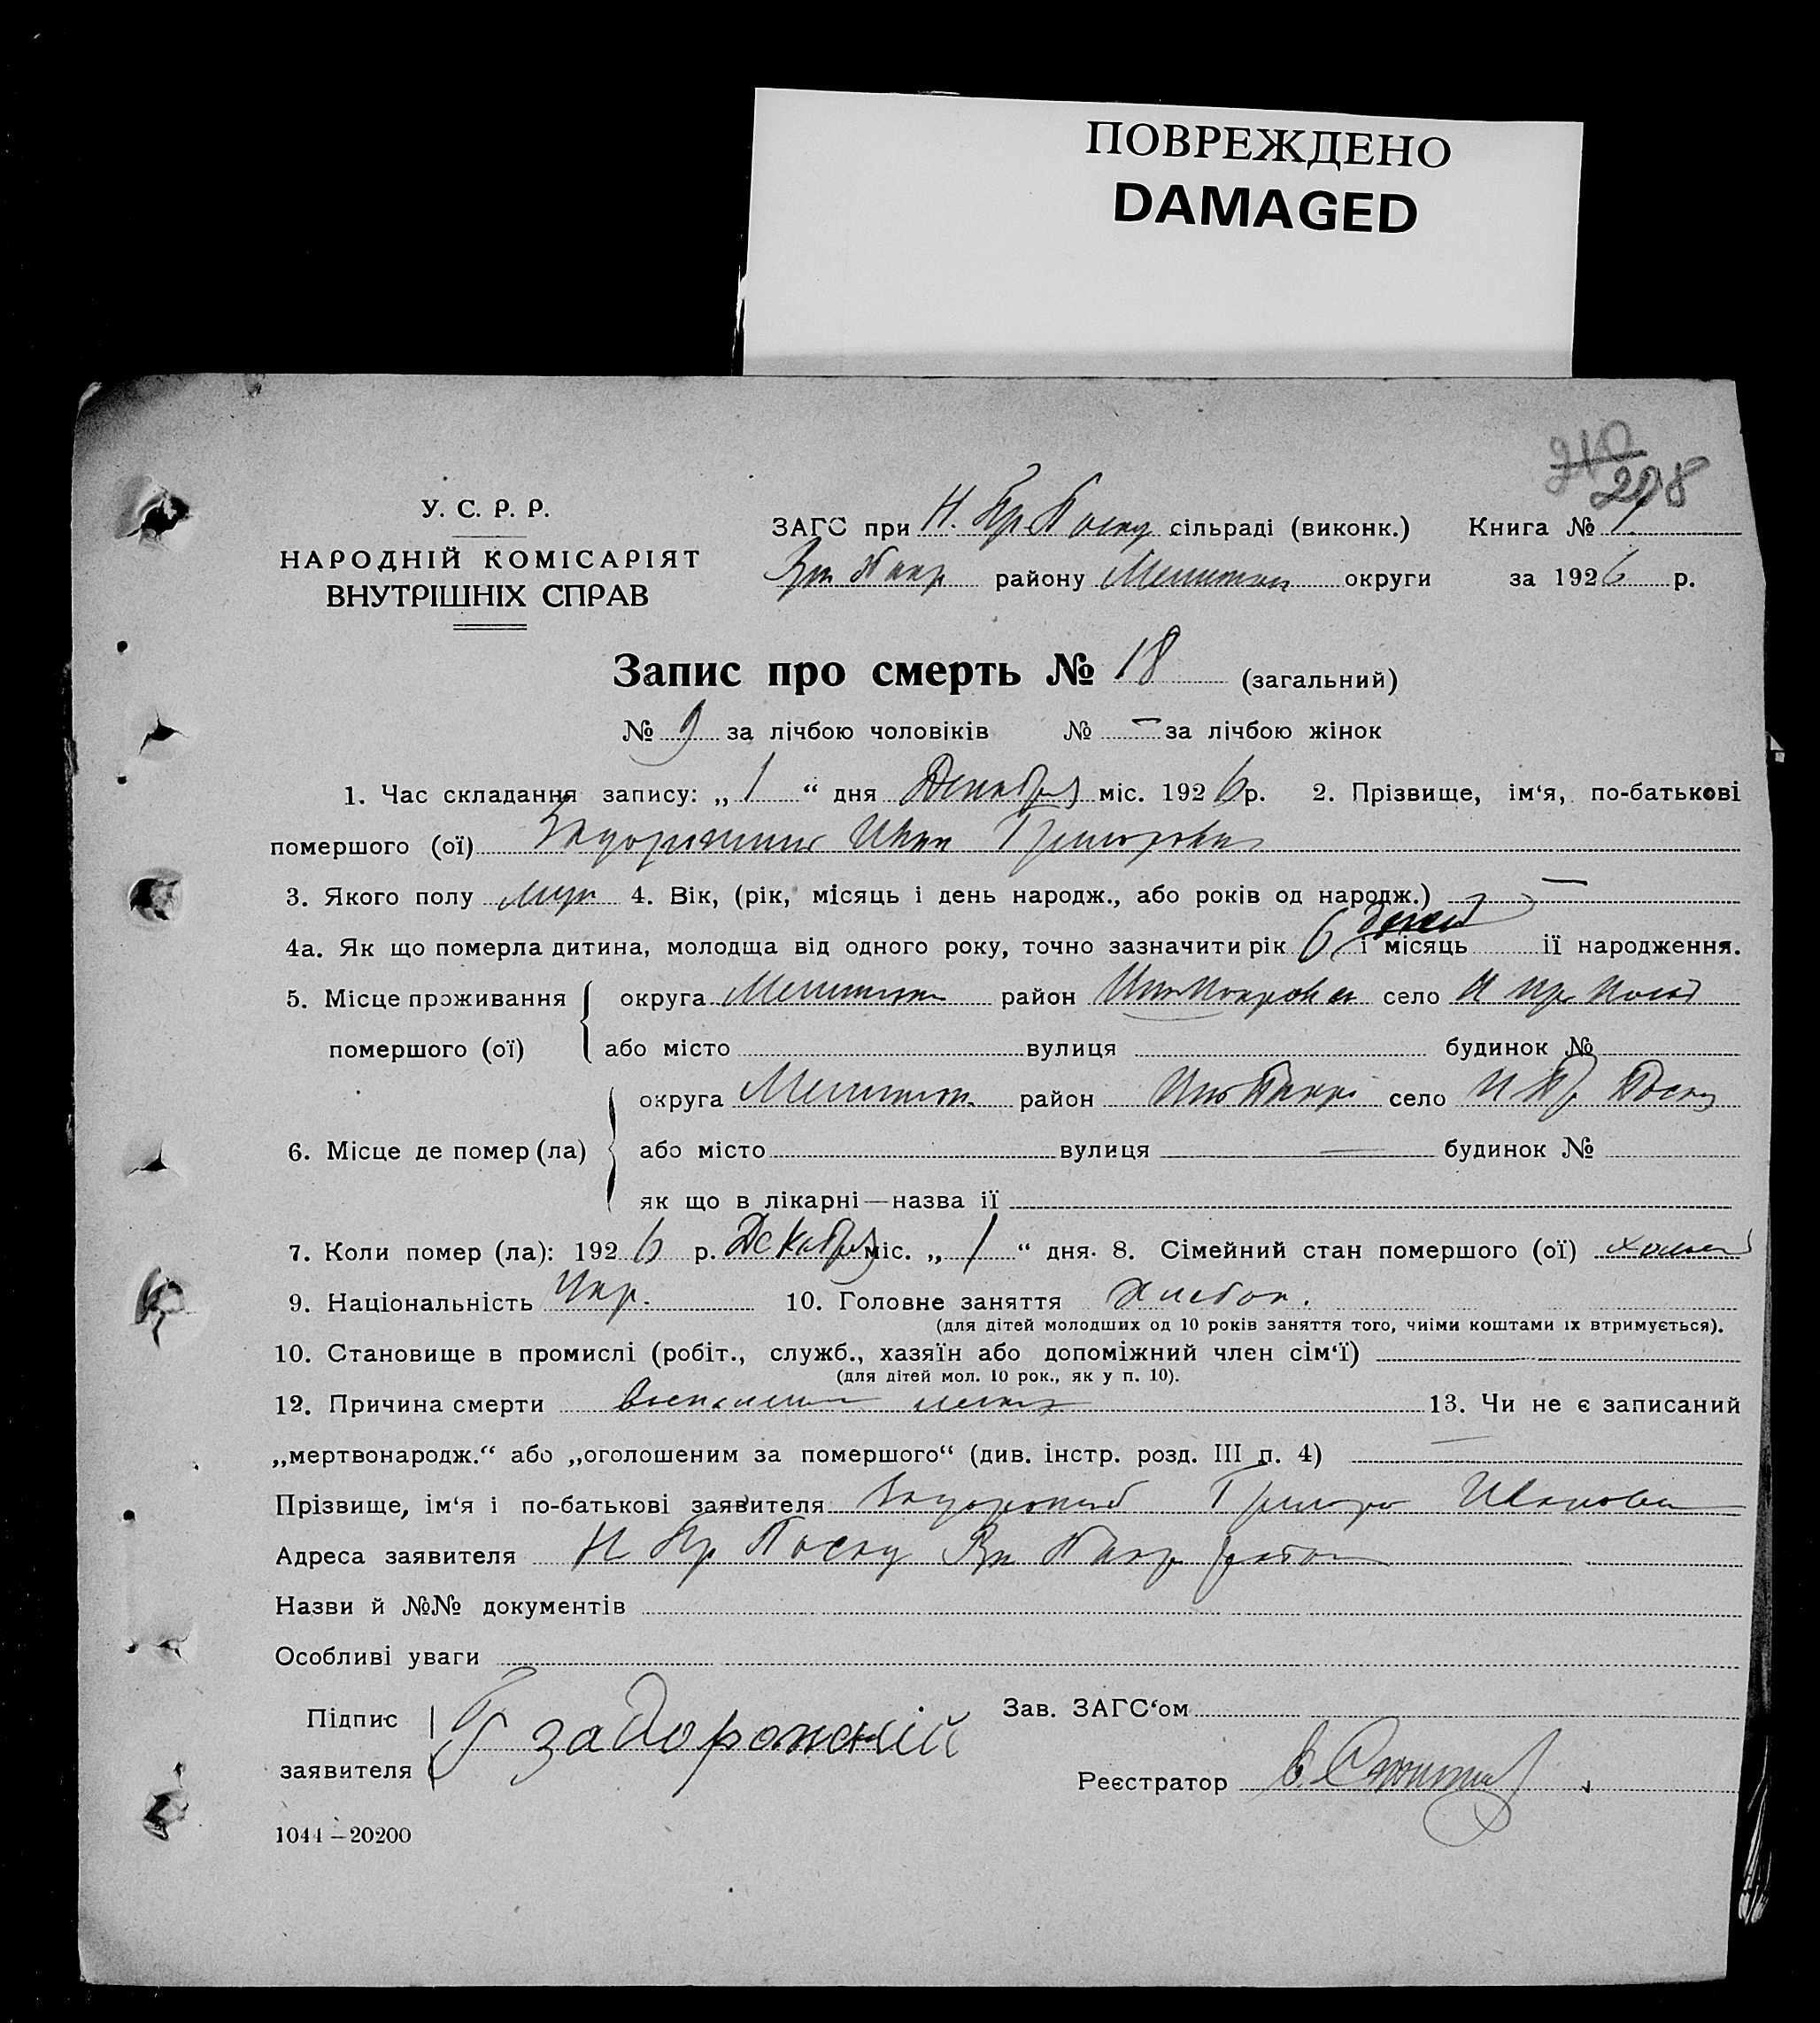 ПОВРЕЖДЕНО
DAMAGED
210
208
У. С. Р. Р.
НАРОДНІЙ КОМІСАРІЯТ
ВНУТРІШНІХ СПРАВ
ЗАГС при Н. Пр. Поску сільраді (виконк.) Книга № 1
району Мелитоп округи за 1926 р.
Запис про смерть № 18 (загальний)
№ 9 за лічбою чоловіків № – за лічбою жінок
1. Час складання запису: „ 1 “ дня Декабря міс. 1926 р. 2. Прізвище, ім‘я, по-батькові
помершого (ої) Задорожний Иван Григорович
3. Якого полу муж. 4. Вік, (рік, місяць і день народж., або років од народж.) —
4а. Як що померла дитина, молодща від одного року, точно зазначити рік 6 дней і місяць ії народження.
5. Місце проживання округа Мелитоп район село Н Пр
помершого (ої) або місто вулиця будинок №
округа Мелитоп. район село Н Пр Поску
6. Місце де помер (ла) або місто вулиця — будинок №
як що в лікарні—назва ії
7. Коли помер (ла): 1926 р. Декабря міс. „ 1 “ дня. 8. Сімейний стан помершого (ої) холост
9. Національність Укр. 10. Головне заняття Хлебоп.
(для дітей молодших од 10 років заняття того, чиїми коштами їх втримується).
10. Становище в промислі (робіт., служб., хазяїн або допоміжний член сім‘ї)
(для дітей мол. 10 рок., як у п. 10).
12. Причина смерти воспаление легких 13. Чи не є записаний
„мертвонародж.“ або „оголошеним за помершого“ (див. інстр. розд. III п. 4) —
Прізвище, ім‘я і по-батькові заявителя Задорожний Григори Иванович
Адреса заявителя Н Пр Поску район
Назви й №№ документів
Особливі уваги
Підпис Г задорожній Зав. ЗАГС‘ом
заявителя
Реєстратор
1044–20200